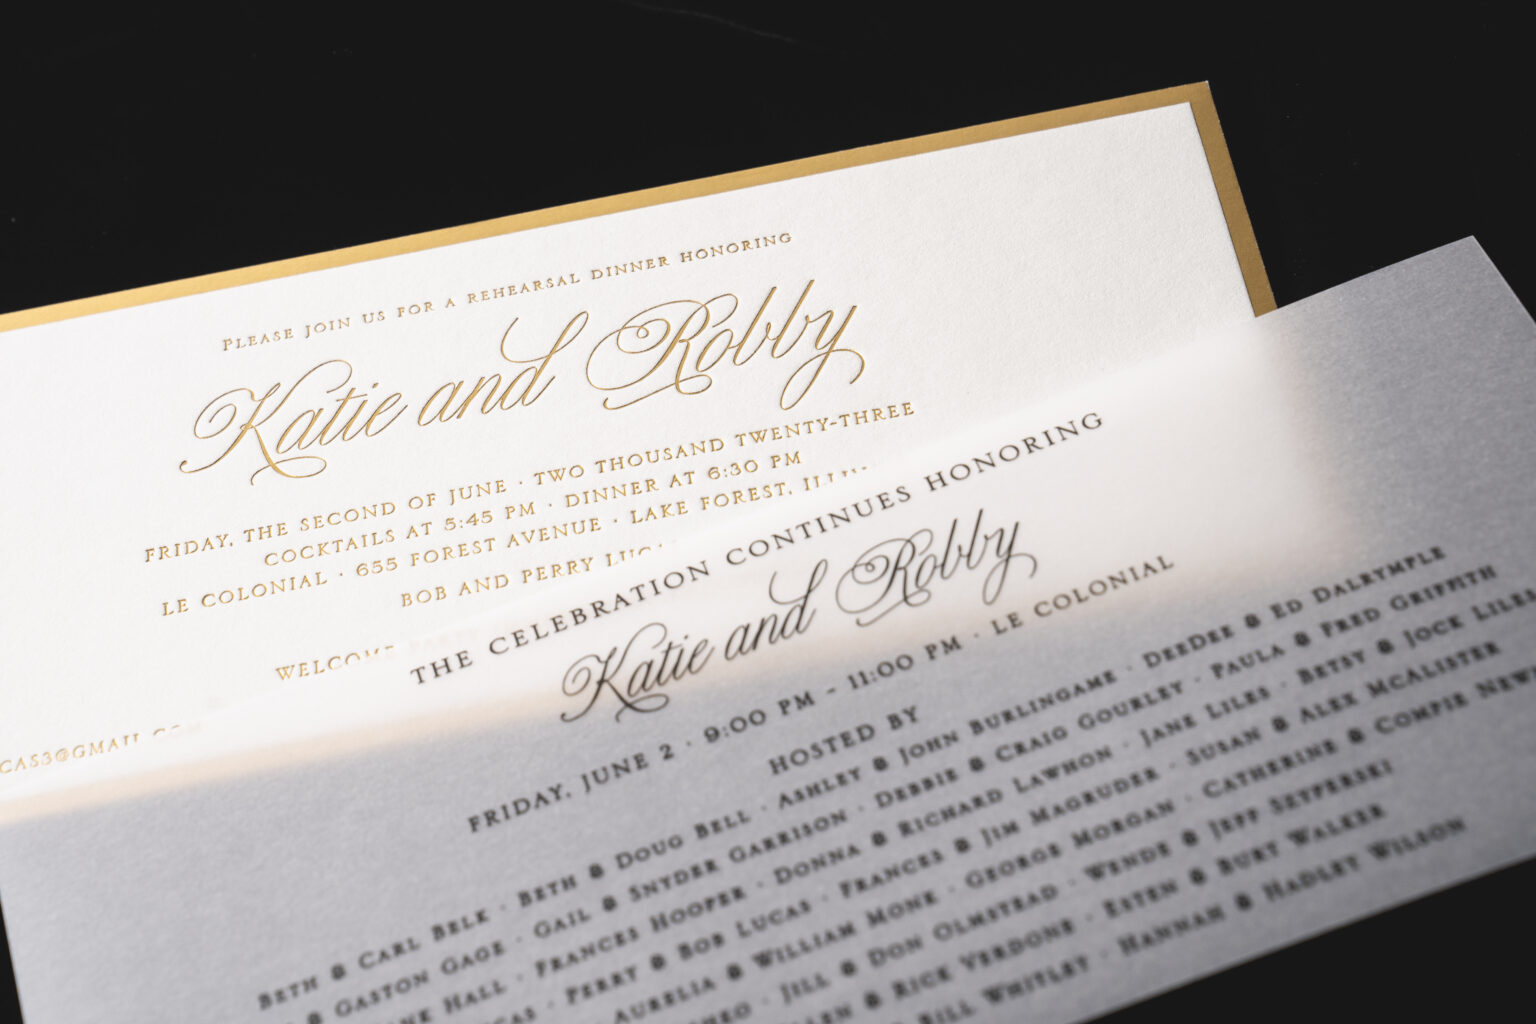 Please join us for a rehearsal dinner honoring
Katie and Robby
Friday, the second of June · two thousand twenty-three
Cocktails at 5:45 pm · Dinner at 6:30 pm
Le Colonial · 655 Forest Avenue · Lake Forest,
Bob and Perry
Welcome
cas3@gmail
The celebration continues honoring
Katie and Robby
Friday, June 2 · 9:00 pm - 11:00 pm · Le Colonial
Hosted by
Beth & Carl Bele · Beth & Doug Bell · Ashley & John Burlingame · DeeDee & Ed Dalrymple
& Gaston Gage · Gail & Snyder Garrison · Debbie & Craig Gourley · Paula & Fred Griffith
Hall · Frances Hooper · Donna & Richard Lawhon · Jane Liles · Betsy & Jock Liles
Perry & Bob Lucas · Frances & Jim Magruder · Susan & Alex McAlister
Aurelia & William Monk · George Morgan · Catherine & Compie
Jill & Don Olmstead · Wende & Jeff Szyperski
& Rice Verdone · Esten & Burt Walker
Bill Whitley · Hannah & Hadley Wilson